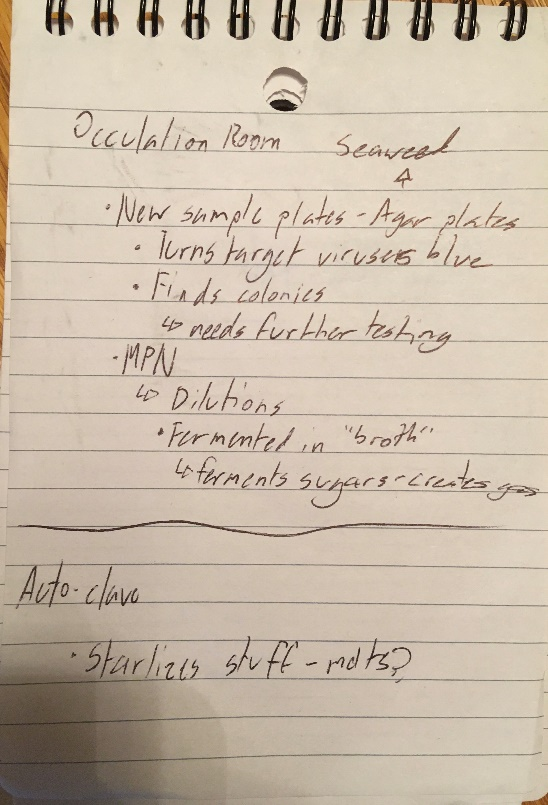 Occulation Room Seaweed
• New sample plates - Agar plates
• Turns target viruses blue
• Finds colonies
↳ needs further testing
• MPN
↳ Dilutions
• Fermented in "broth"
↳ ferments sugars - creates gas
Auto-clave
• Starlizes stuff - melts?